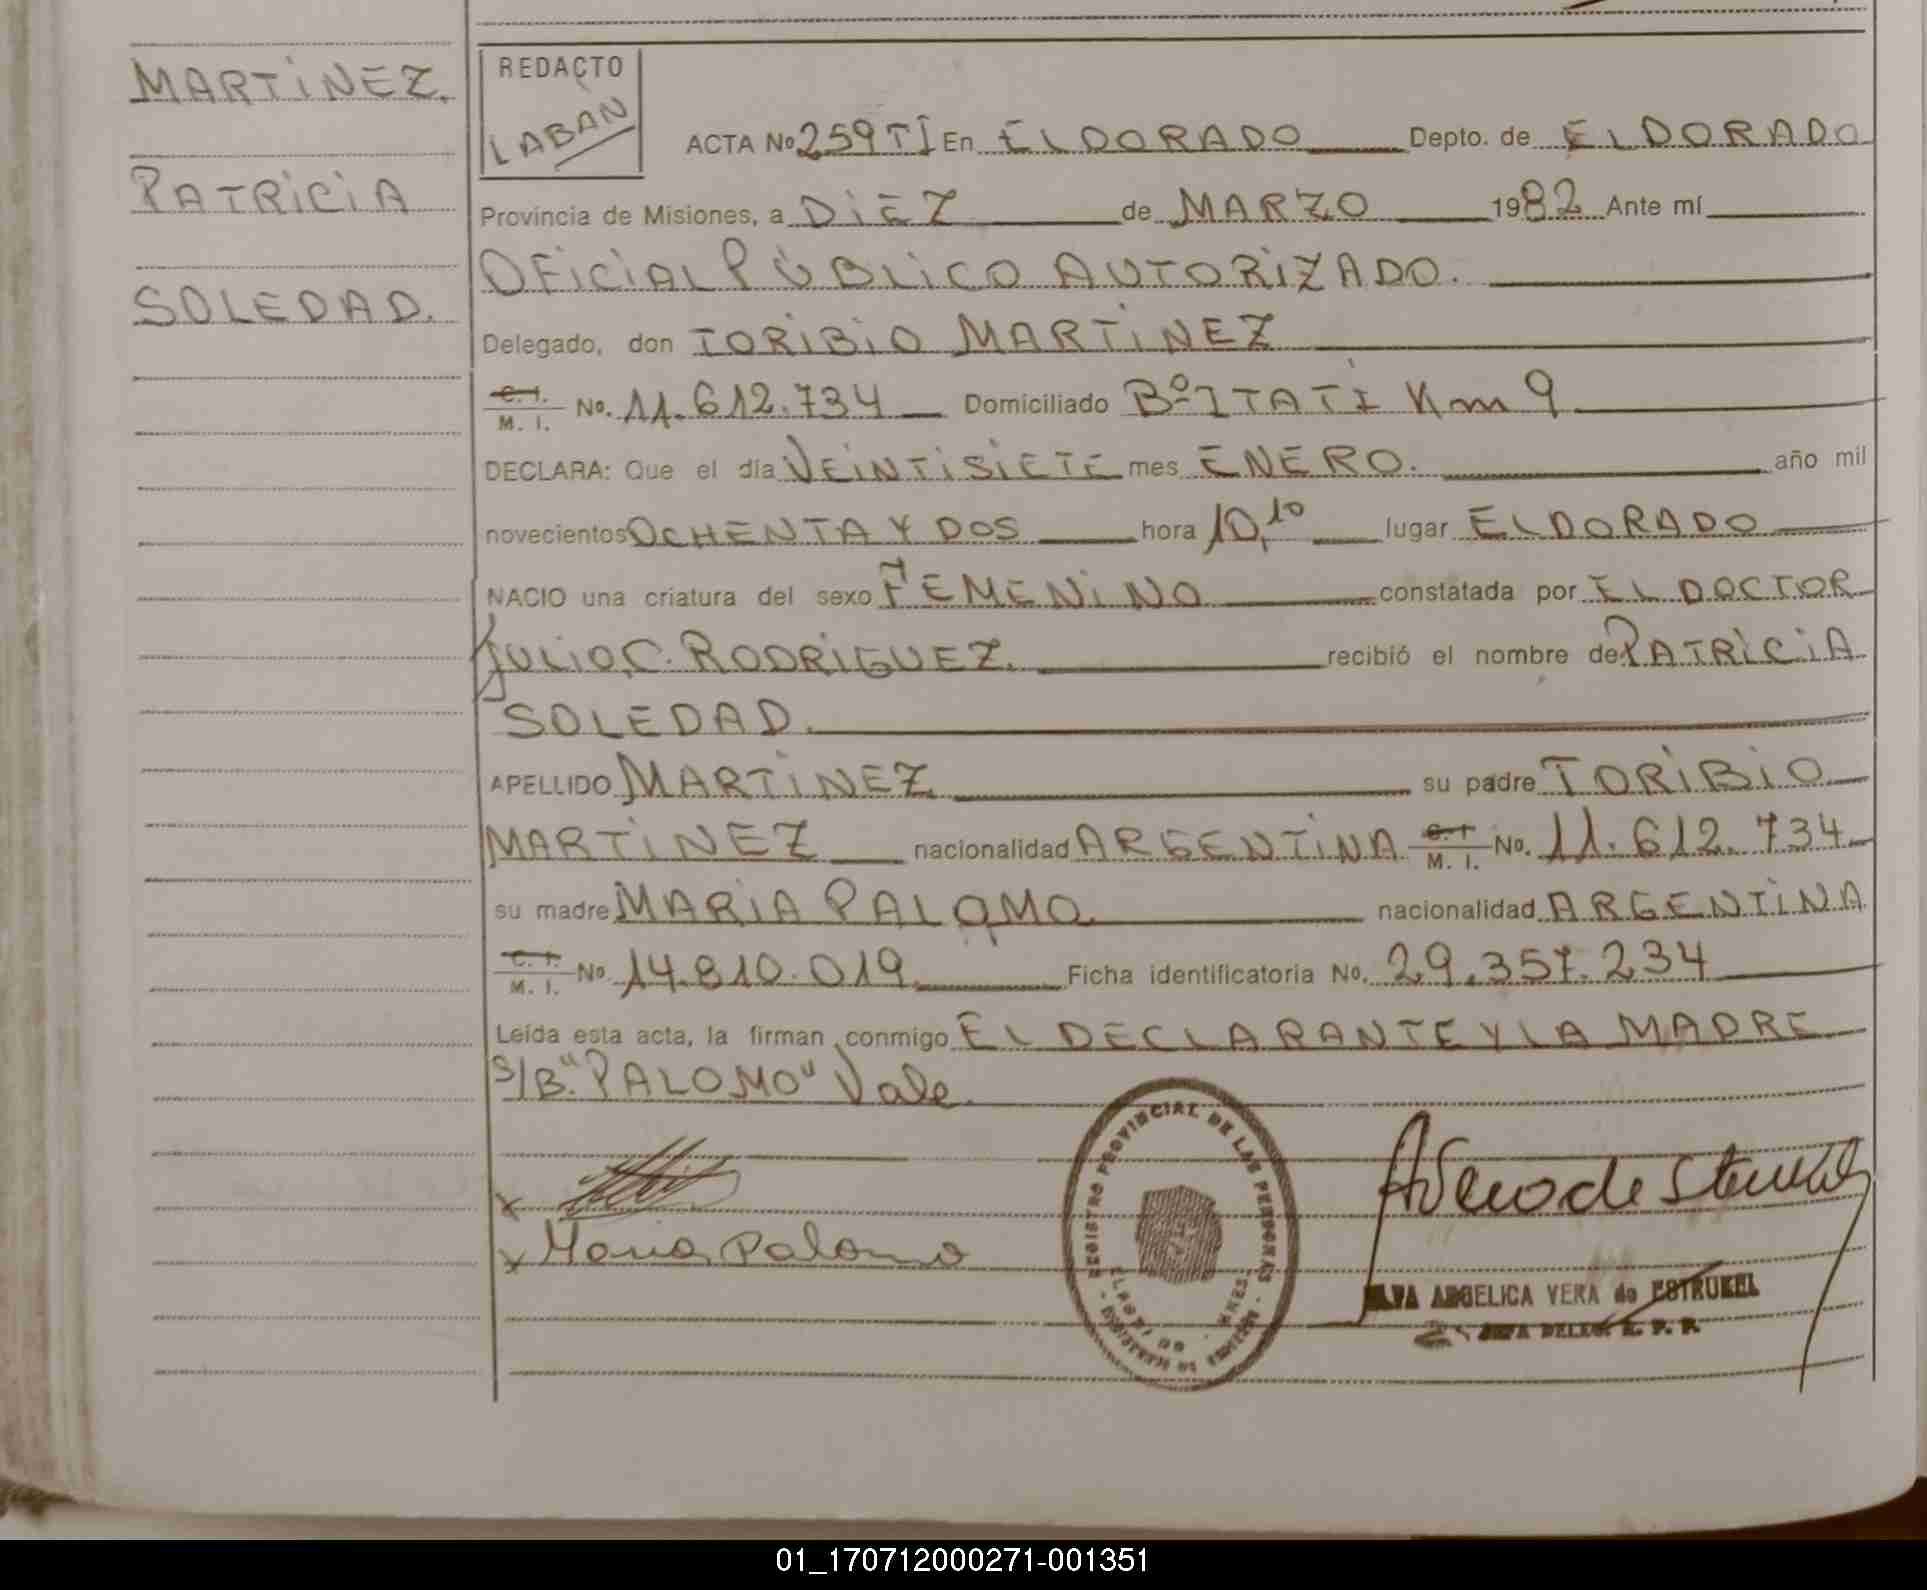 MARTINEZ.
PATRICIA
SOLEDAD.
REDACTO
LABAN
ACTA No 259 TI En ELDORADO Depto. de ELDORADO
Provincia de Misiones, a DIEZ de MARZO 1982 Ante mí
OFICIAL PÚBLICO AUTORIZADO.
Delegado, don TORIBIO MARTINEZ
C. I. / M. I. No. 11.612.734 Domiciliado Bº ITATI Km 9
DECLARA: Que el día VEINTISIETE mes ENERO. año mil
novecientos OCHENTA Y DOS hora 10,10 lugar ELDORADO
NACIO una criatura del sexo FEMENINO constatada por EL DOCTOR
JULIO C. RODRIGUEZ. recibió el nombre de PATRICIA
SOLEDAD.
APELLIDO MARTINEZ su padre TORIBIO
MARTINEZ nacionalidad ARGENTINA C. I / M. I. No. 11.612.734
su madre MARIA PALOMO. nacionalidad ARGENTINA
C. I. / M. I. No 14.810.019 Ficha identificatoria No. 29.357.234
Leída esta acta, la firman conmigo EL DECLARANTE Y LA MADRE
S/B. "PALOMO" Vale.
x
x Maria Palomo
REGISTRO PROVINCIAL DE LAS PERSONAS
ANGELICA VERA de ESTRUKEL
JEFA DELEG. R. P. P.
01_170712000271-001351